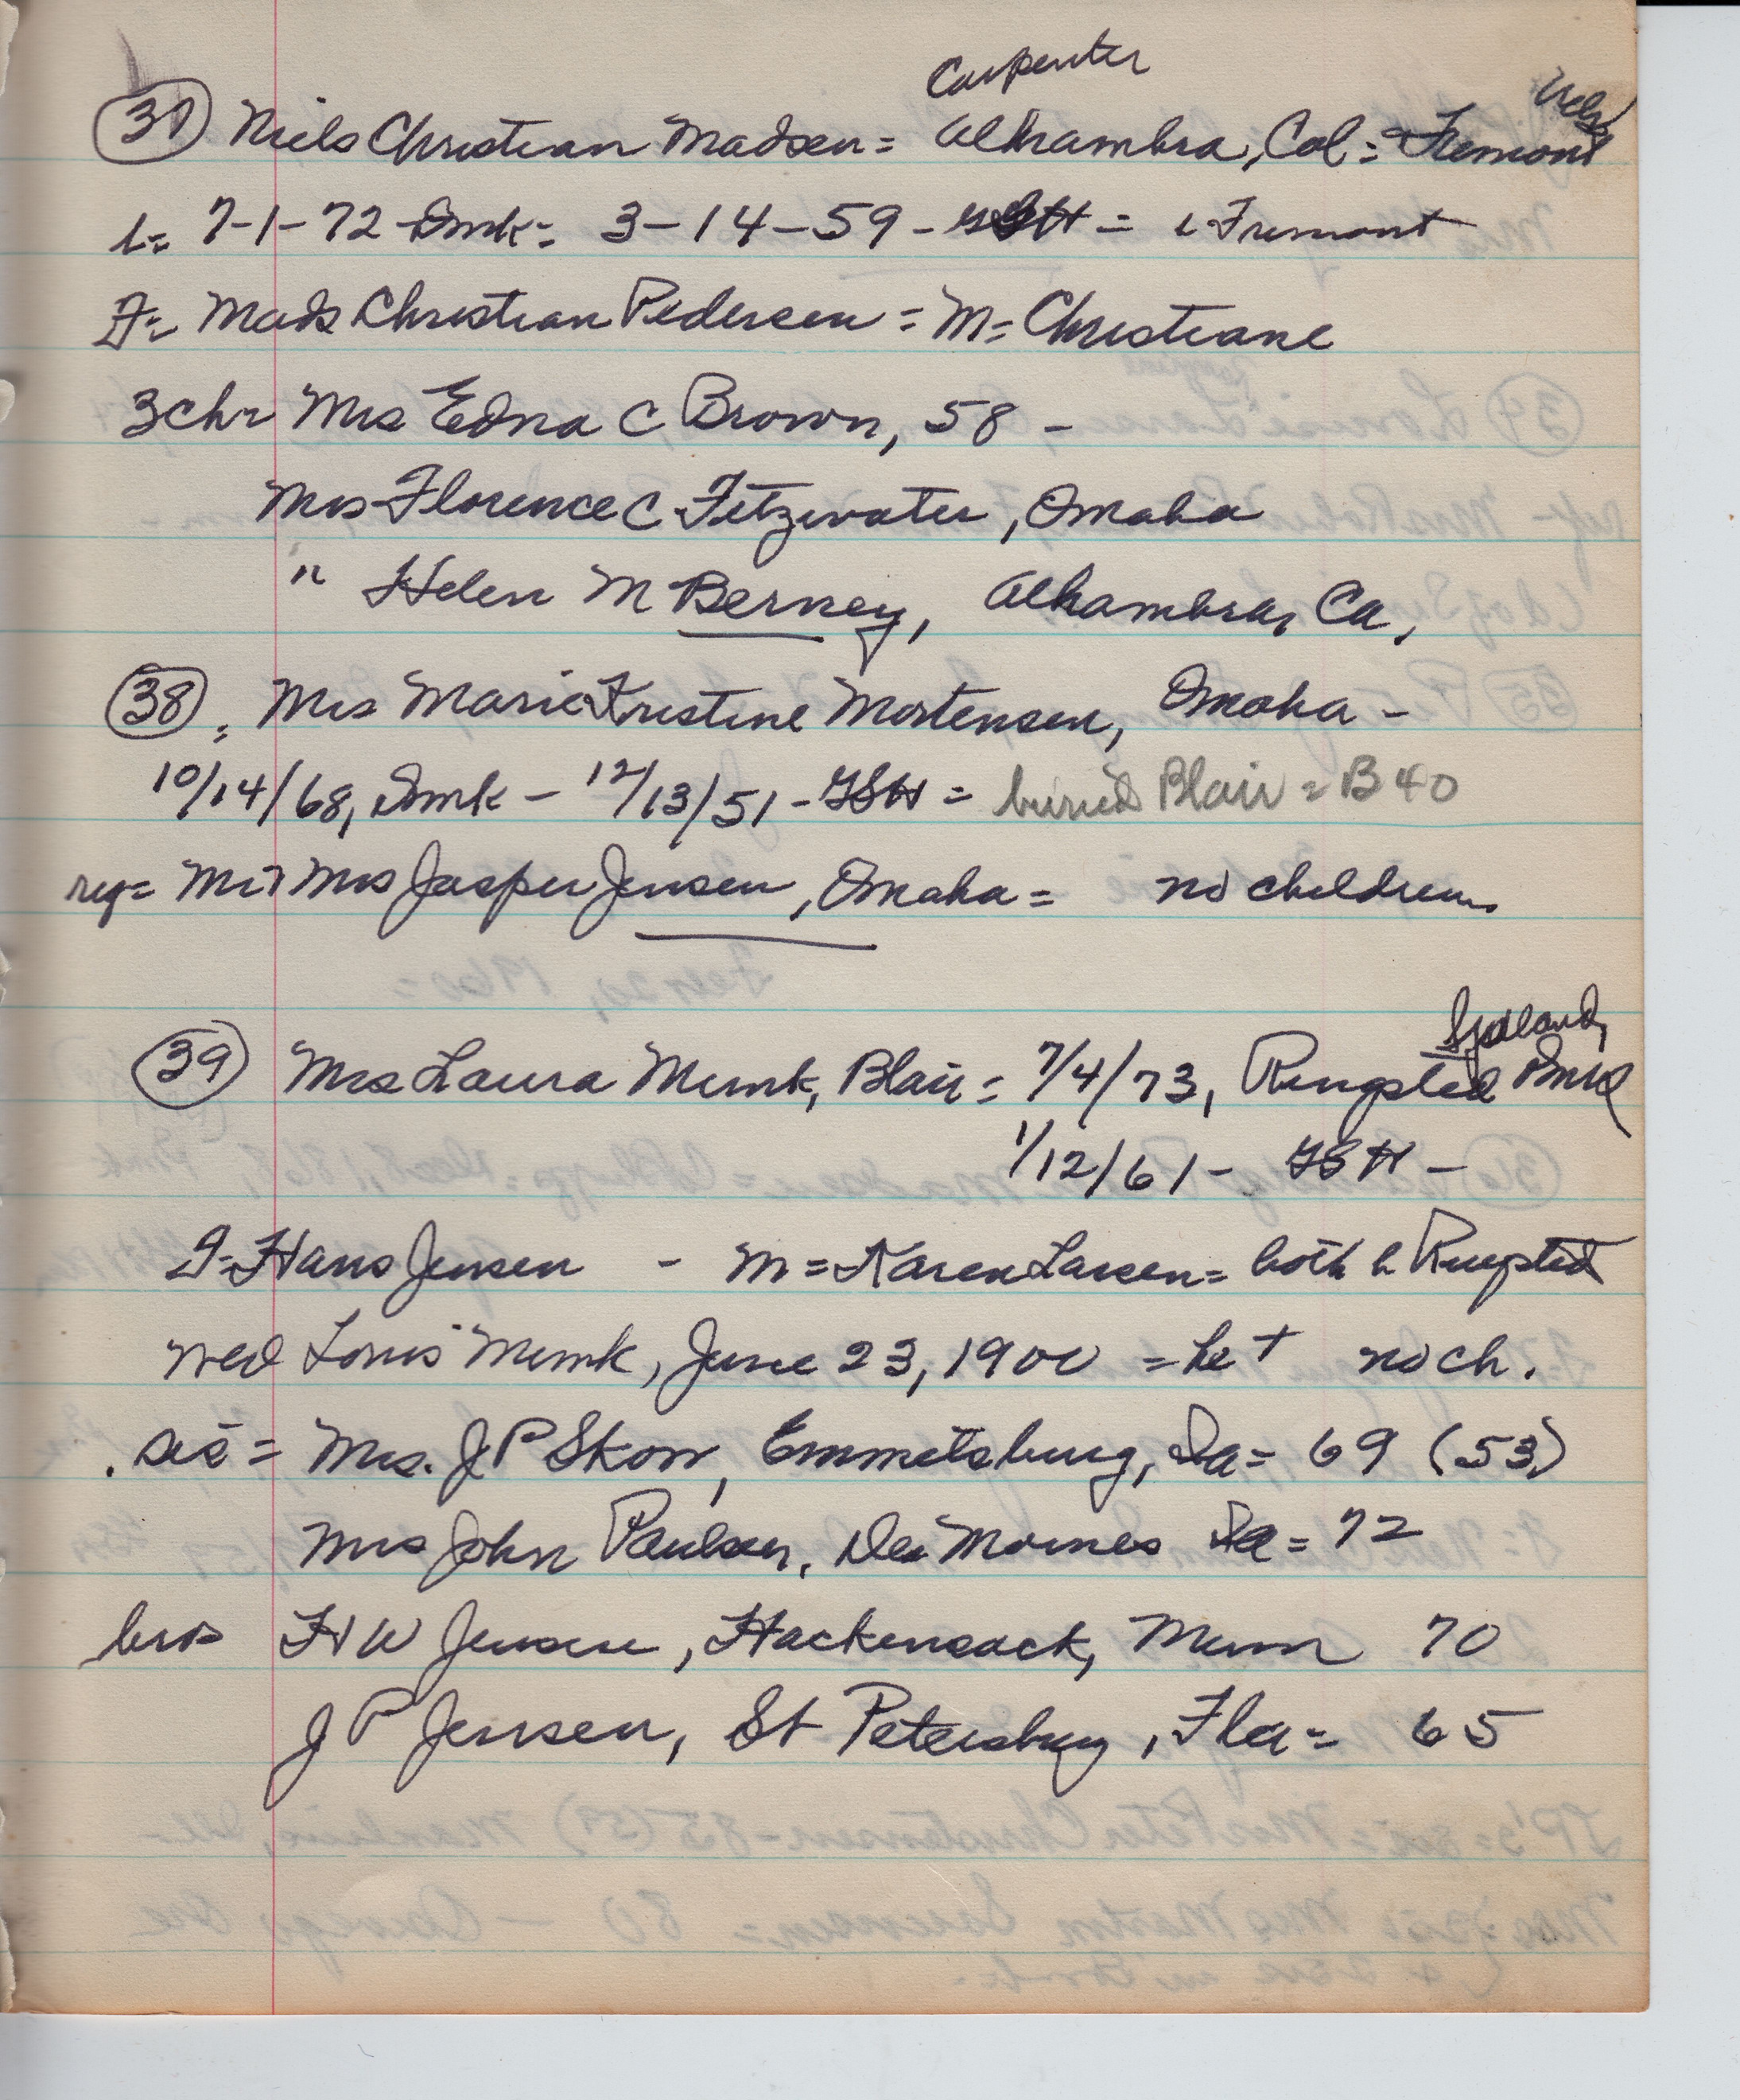 Carpenter
(37) Niels Christian Madsen = Alhambra, Cal = Fremont
b= 7-1-72 Dmk = 3-14-59 - GSH = Fremont
F= Mads Christian Pedersen = M= Christiane
3 chr Mrs Edna C Brown, 58 -
Mrs Florence C Fitzwater, Omaha
" Helen M Berney, Alhambra, Ca,
(38), Mrs Marie Kristine Mortensen, Omaha -
10/14/68, Dmk - 12/13/51 - GSH = buried Blair = B 40
Mr & Mrs Jasper Jensen, Omaha = no children
Sjælland,
(39) Mrs Laura Munk, Blair = 7/4/73, Ringsted Dmk
1/12/61 - GSH -
F= Hans Jensen - M= Karen Larsen = both b Ringsted
wed Louis Munk, June 23, 1900 = he + no ch.
sis = Mrs. J P Skow, Emmetsburg, Ia = 69 (53)
Mrs John Paulsen, Des Moines Ia = 72
bros H W Jensen, Hackensack, Minn 70
J P Jensen, St Petersburg, Fla = 65